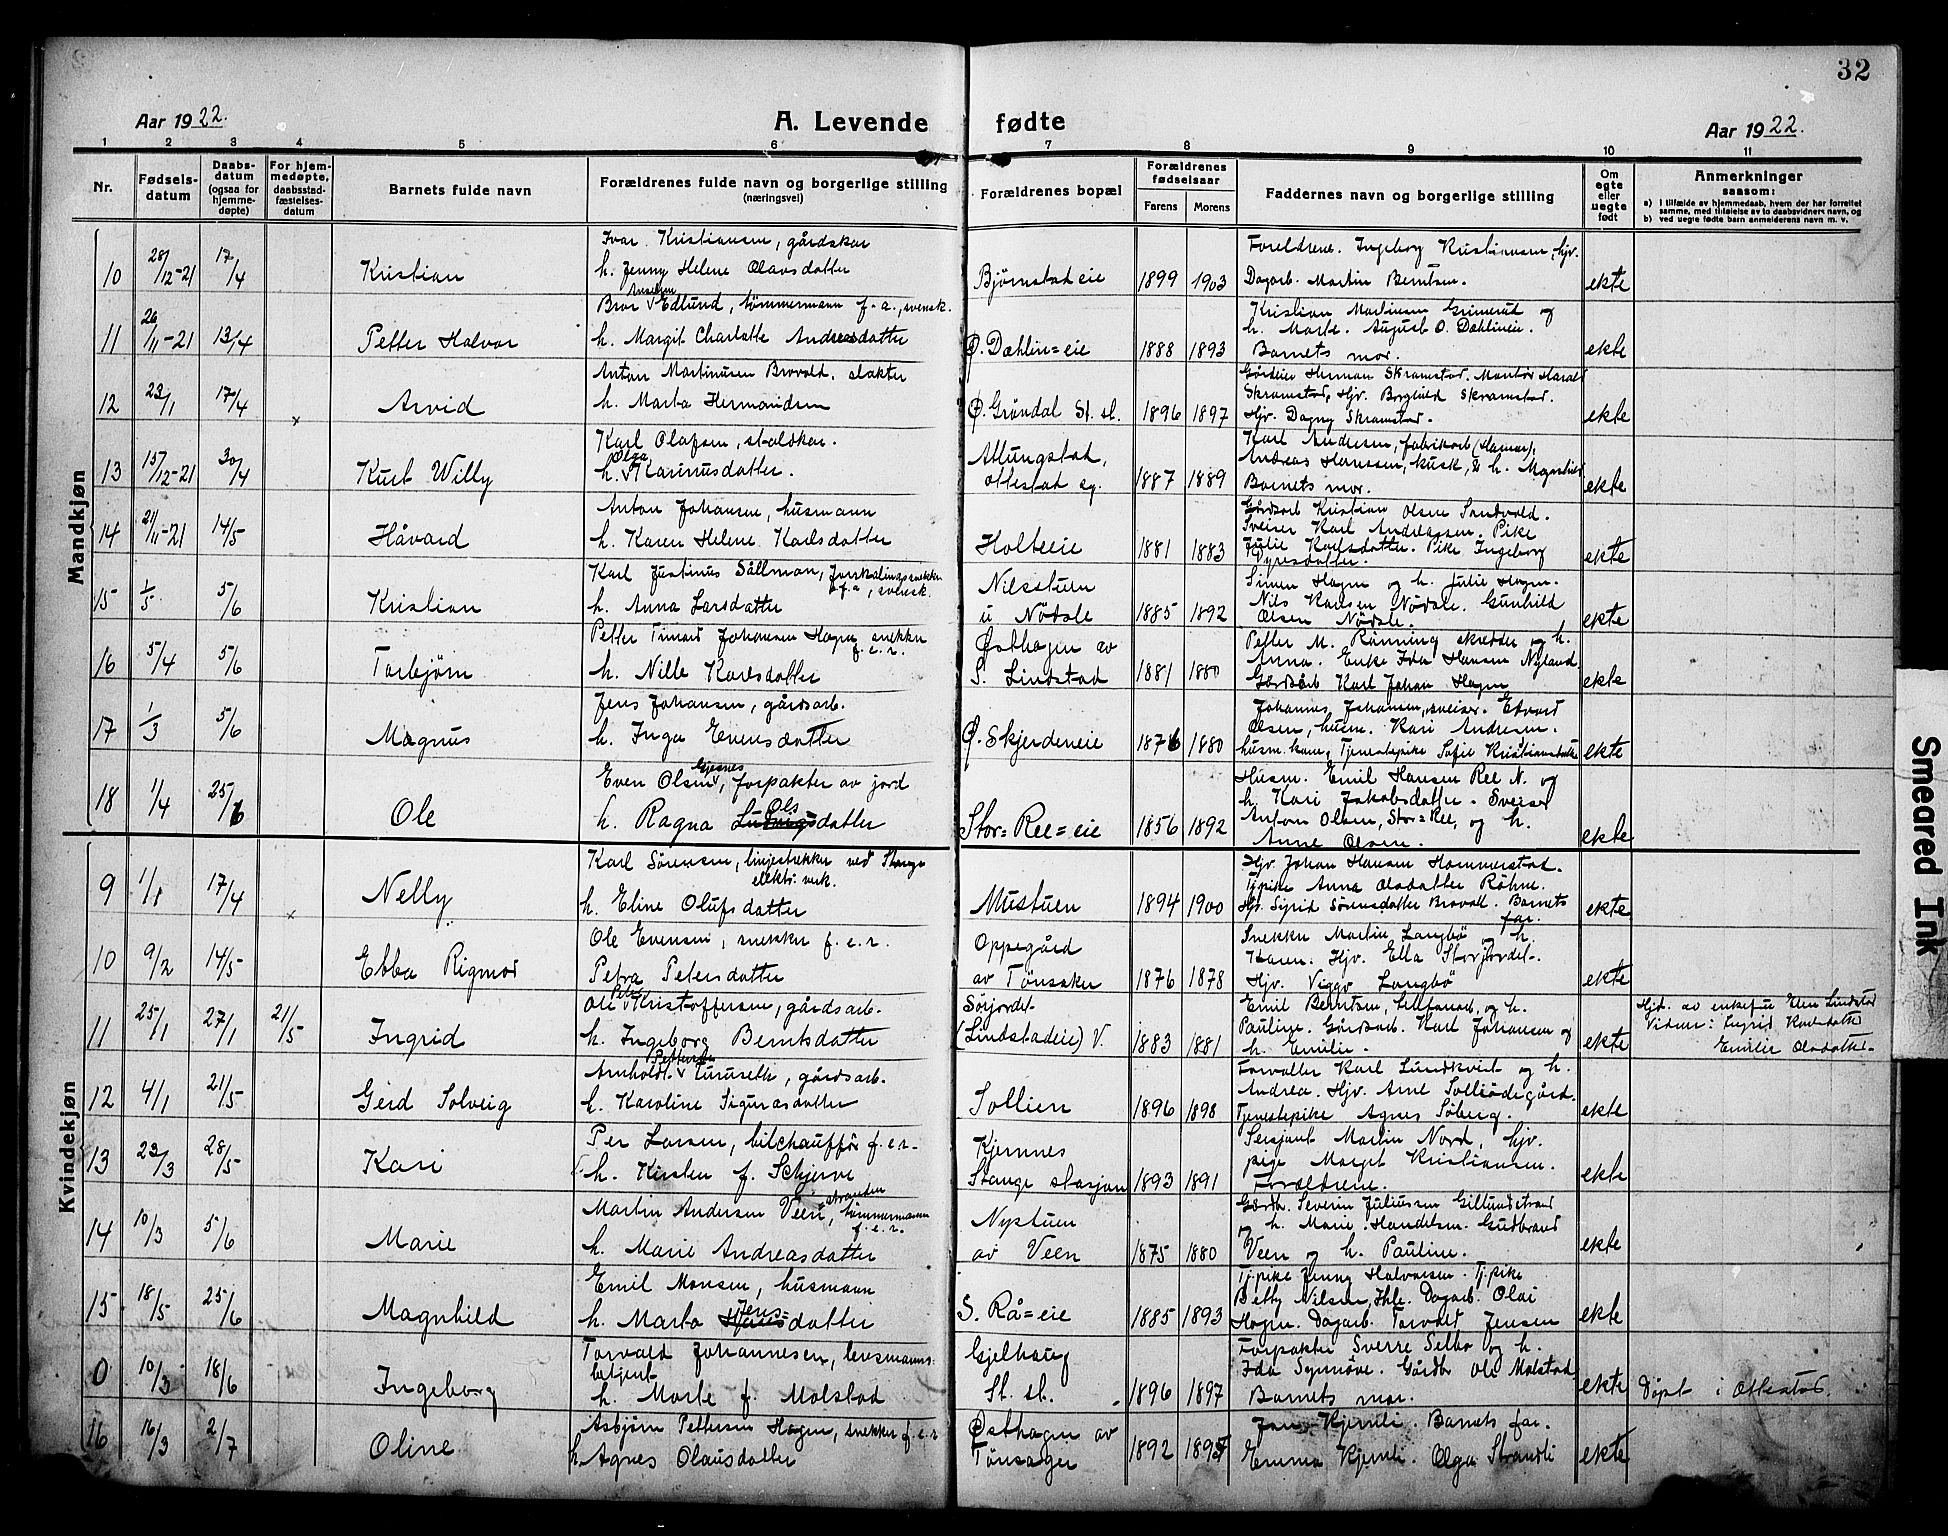 32
Aar 1922.
A. Levende fødte
Aar 1922.
1 2 3 4 5 6 7 8 9 10 11
Nr.
Fødsels-
datum
Daabs-
datum
(ogsaa for
hjemme-
døpte)
For hjem-
medøpte,
daabsstad-
fæstelses-
datum
Barnets fulde navn
Forældrenes fulde navn og borgerlige stilling
(næringsvei)
Forældrenes bopæl
Forældrenes
fødselsaar
Farens Morens
Faddernes navn og borgerlige stilling
Om
egte
eller
uegte
født
Anmerkninger
saasom:
a) i tilfælde av hjemmedaab, hvem der har forrettet
samme, med tilføielse av to daabsvidners navn, og
b) ved uegte fødte barn anmelderens navn m. v.
Mandkjøn
10 28/12-21 17/4 Kristian
Ivar Kristiansen, gårdskar
h. Jenny Helene Olavsdatter
Bjørnstadeie 1899 1903
Foreldrene. Ingeborg Kristiansen, hjv.
Dagarb. Martin Berntsen.
ekte
11 26/11-21 13/4 Petter Halvor
Bror Edlund, tømmermann f. a., svensk.
h. Margit Charlotte Andreasdatter
Ø. Dæhlin=eie 1888 1893
Kristian Martinsen Grimerud og
h. Marte. August O. Dæhlineie.
Barnets mor.
ekte
12 23/1 17/4 x Arvid
Anton Martinusen Brovold, slakter
h. Marta Hermandsen
Ø. Grøndal St. st. 1896 1897
Gårdeier Herman Skramstad. Montør Harald
Skramstad, Hjv. Borghild Skramstad.
Hjv. Dagny Skramstad.
ekte
13 15/12-21 30/4 Kurt Willy
Karl Olafsen, staldkar.
h. Olga Karinusdatter.
Atlungstad,
Ottestad sg. 1887 1889
Karl Andersen, fabrikarb. (Hamar),
Andreas Hanssen, kusk, & h. Magnhild
Barnets mor.
ekte
14 21/11-21 14/5 Håvard
Anton Johansen, husmann
h. Karen Helene Karlsdatter
Holteeie 1881 1883
Gårdsarb Kristian Olsen Sandvold.
Sveiser Karl Andreassen. Pike
Julie Karlsdatter. Pike Ingeborg
ekte
15 1/5 5/6 Kristian
Karl Justinus Sållman, forskalingssnekker
f. a, svensk.
h. Anna Larsdatter
Nilsstuen
u Nødsle 1885 1892
Simen Hagen og h. Julie Hagen.
Nils Karlsen Nødsle. Gunhild
Olsen Nødsle.
ekte
16 5/4 5/6 Torbjørn
Petter Johansen Hagen snekker
f. e. r.
h. Nille Karlsdatter
Østhagen av
S. Lindstad 1881 1880
Petter M. Rønning skredder og h.
Anna. Enke Ida Hansen Nyland.
Gårdsarb Karl Johan Hagen
ekte
17 1/3 5/6 Magnus
Jens Johansen, gårdsarb.
h. Inga Evensdatter
Ø. Skjerdeneie 1876 1880
Johannes Johansen, sveiser. Edvard
Olsen, husm. Kari Andersen.
husm. kone, Tjenestepike Sofie Kristiansdatter
ekte
18 1/4 25/6 Ole
Even Olsen Gjesnes, forpakter av jord
h. Ragna Olsdatter
Stor=Ree=eie 1856 1892
Husm. Emil Hansen Ree N. og
h. Kari Jakobsdatter. Sveiser
Anton Olsen, Stor=Ree, og h.
Anne Olsen.
ekte
Kvindekjøn
9 1/1 17/4 x Nelly
Karl Sørensen, linjestrekker ved Stange
elektr. verk.
h. Eline Olufsdatter
Mustuen 1894 1900
Hjv. Johan Hansen Hommerstad.
Tjpike Anna Olsdatter Røhne.
Hjv. Sigrid Sørensdatter Brovoll. Barnets
far.
ekte
10 9/2 14/5 Ebba Rigmor
Ole Evensen, snekker f. e. r.
Petra Petersdatter
Oppegård
av Tønsaker 1876 1878
Snekker Martin Langbø og h.
Karen. Hjv. Ella Storjordet.
Hjv. Viggo Langbø
ekte
11 25/1 27/1 21/5 Ingrid
Ole Peter Kristoffersen, gårdsarb.
h. Ingeborg Berntsdatter
Søjordet
(Lindstadeie) V. 1883 1881
Emil Berntsen, og h.
Pauline. Gårdsarb. Karl Johansen og
h. Emilie.
ekte
Hjd. av enkefru Elen Lindstad
Vidner: Ingrid Karlsdatter
Emilie Olsdatter.
12 4/1 21/5 Gerd Solveig
Arnholdt Pettersen Tururelli, gårdsarb.
h. Karoline Sigurdsdatter
Sollien 1896 1898
Forvalter Karl Lundkvist og h.
Andrea. Hjv. Arne Sollieødegård.
Tjenestepike Agnes Søberg.
ekte
13 23/3 28/5 Kari
Per Larsen, bilchauffør f. e r.
h. Kirsten f. Schjerve
Kjemnes
Stange stasjon 1893 1891
Sersjant Martin Nord, hjv.
pige Margit Kristiansen.
Forældrene.
ekte
14 10/3 5/6 Marie
Martin Andersen Veenstranden, tømmermann
f. e. r.
h. Marie Andreasdatter
Nystuen
av Veen 1875 1880
Gårdbr. Severin Juliussen Gillundstrand
og h. Marie. Handelsm. Gudbrand
Veen og h. Pauline.
ekte
15 18/5 25/6 Magnhild
Emil Monsen, husmann
h. Marta Jensdatter
S. Rå=eie 1885 1893
Tjpike Jenny Halvorsen. Tjpike
Betty Nilsen, Ihle. Dagarb. Olai
Hagen. Dagarb. Torvald Jensen
ekte
0 10/3 18/6 Ingeborg
Torvald Johannesen, lensmanns-
betjent
h. Marte f. Molstad
Gjelhaug
St. st. 1896 1897
Forpakter Sverre Selbo og h.
Ida Synnøve. Gårdbr Ole Molstad
Barnets mor.
ekte
Døpt i Ottestad.
16 16/3 2/7 Oline
Asbjørn Pettersen Hagen, snekker f. e. r
h. Agnes Olausdatter
Østhagen av
Tønsager 1892 1895
Jan Kjemli. Barnets far.
Emma Kjemli. Olga Strandli
ekte
Smeared Ink